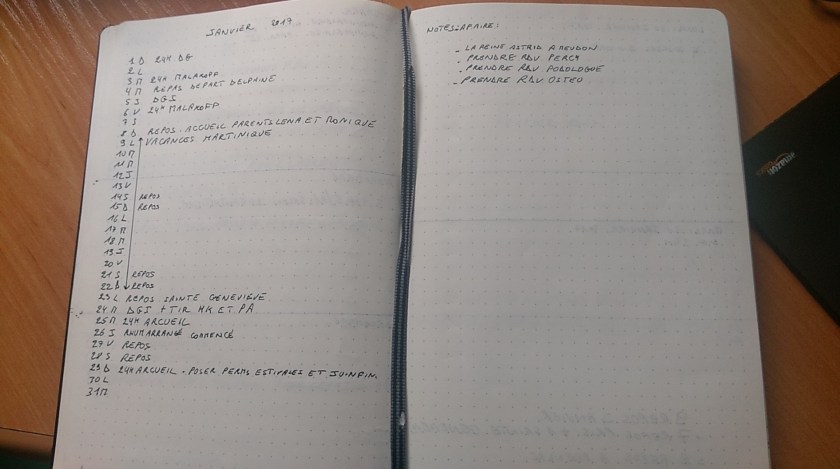 JANVIER 2017
1 D 24H DG
2 L
3 M 24H MALAKOFF
4 M REPAS DEPART DELPHINE
5 J DGS
6 V 24H MALAKOFF
7 S
8 D REPOS - ACCUEIL PARENTS LENA ET MONIQUE
9 L VACANCES MARTINIQUE
10 M
11 M
12 J
13 V
14 S REPOS
15 D REPOS
16 L
17 M
18 M
19 J
20 V
21 S REPOS
22 D REPOS
23 L REPOS SAINTE GENEVIEVE
24 M DGS + TIR HK ET PA
25 M 24H ARCUEIL
26 J RHUM ARRANGÉ COMMENCÉ
27 V REPOS
28 S REPOS
29 D 24H ARCUEIL - POSER PERMS ESTIVALES ET JUINFIN
30 L
31 M
NOTES: À FAIRE:
- LA REINE ASTRID A MEUDON
- PRENDRE RDV PERCY
- PRENDRE RDV PODOLOGUE
- PRENDRE RDV OSTEO
amazon